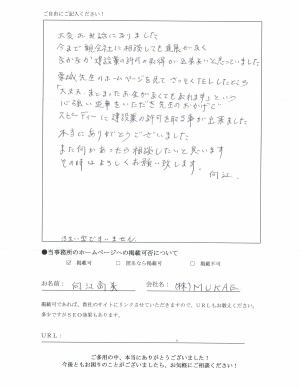 ご自由にご記入ください！
大変お世話になりました
今まで親会社に相談しても進展が無く
なかなか建設業の許可の取得が出来ないと思っていました
先生のホームページを見て さっそくTELしたところ
「大丈夫、まとまったお金がなくても取れます」という
心強い返事をいただき先生のおかげで
スピーディーに建設業の許可を取る事が出来ました
本当にありがとうございました
また何かあったら相談したいと思います
その時はよろしくお願い致します。
向江
汚ない字ですいません
●当事務所のホームページへの掲載可否について
☑ 掲載可 □ 匿名なら掲載可 □ 掲載不可
お名前： 向江 会社名： (株)MUKAE
掲載可であれば、貴社のサイトにリンクさせていただきますので、URLもお教えください。
多少ですがSEO効果もあります。
URL：
ご多用の中、本当にありがとうございました！
今後ともお困りのことがございましたら、お気軽にご相談ください！